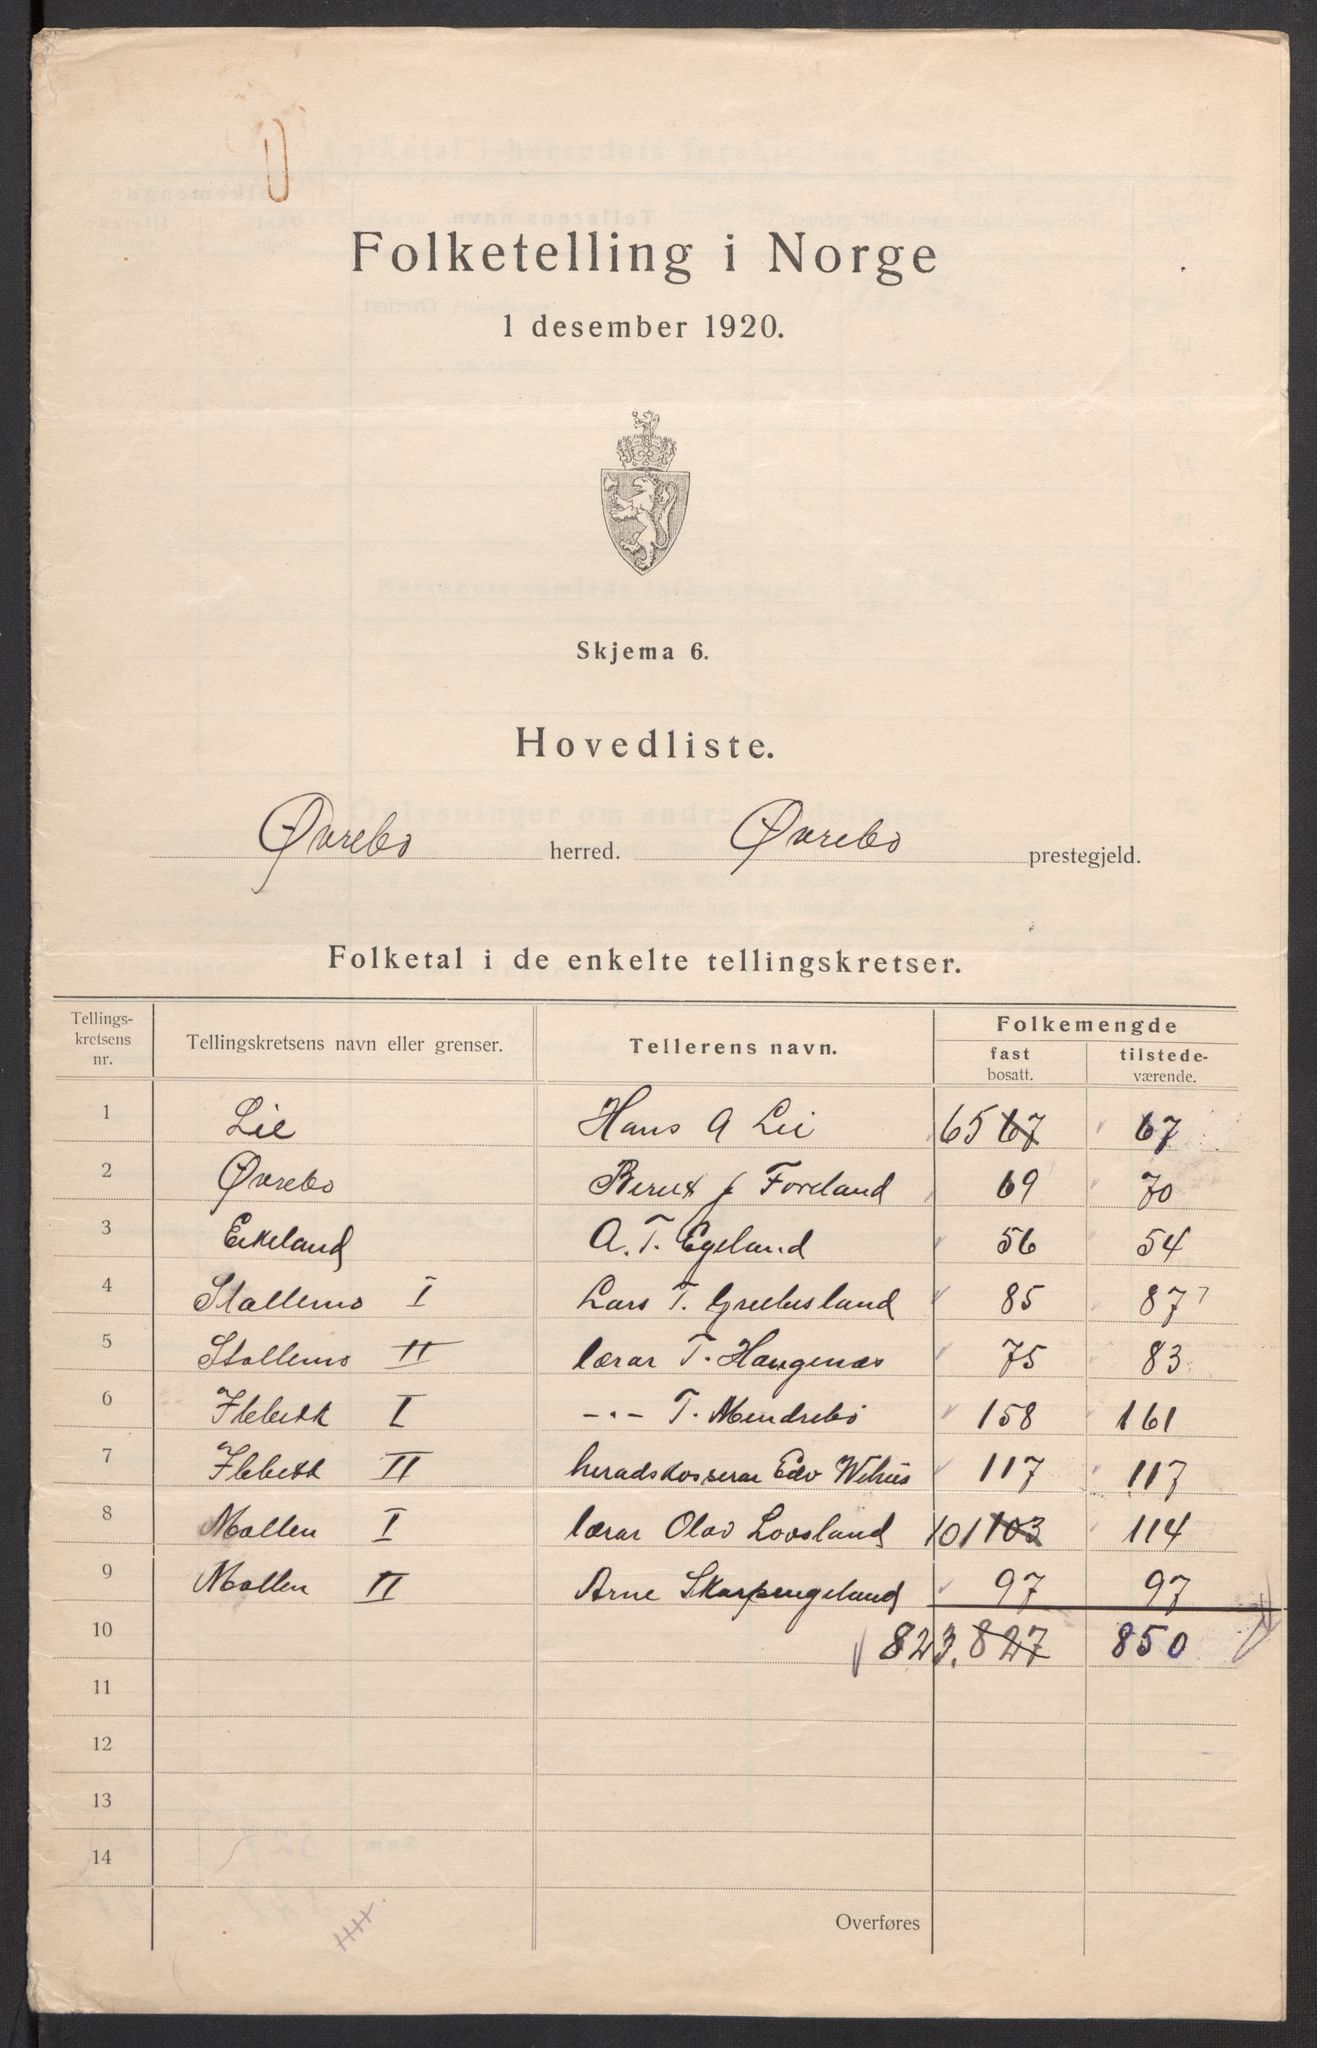 Folketelling i Norge
1 desember 1920.
Skjema 6.
Hovedliste.
Øvrebo herred. Øvrebo prestegjeld.
Folketal i de enkelte tellingskretser.
Tellings-
kretsens
nr.
Tellingskretsens navn eller grenser.
Tellerens navn.
Folkemengde
fast
bosatt.
tilstede-
værende.
1 Lie Hans A Lie 65 67 67
2 Øvrebo Berut J Foreland 69 70
3 Eikeland A. T. Egeland 56 54
4 Stallemo I Lars T. Greibesland 85 87
5 Stallemo II lærar T. Haugenæs 75 83
6 I -"- T. Mendrebö 158 161
7 II heradskasserar Edv Wehus 117 117
8 Mollen I lærar Olav Lovsland 101 103 114
9 Mollen II Arne Skarpengeland 97 97
10 823. 827 850
11
12
13
14
Overføres